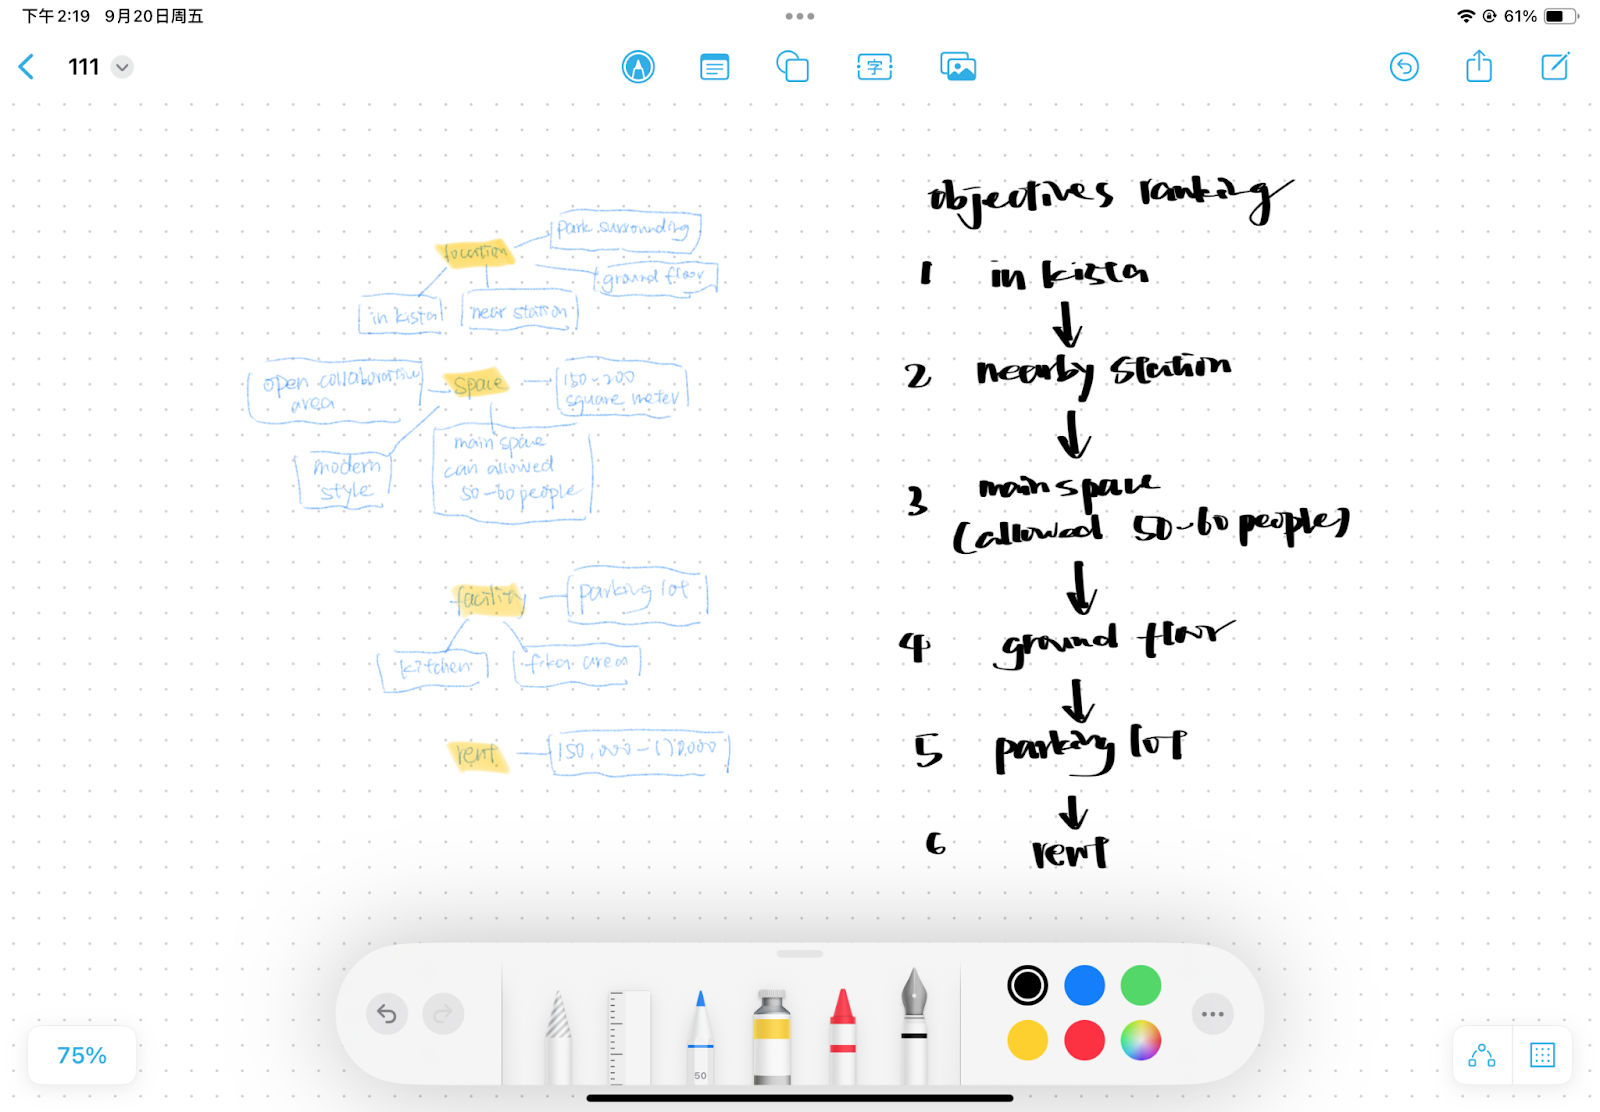 下午2:19 9月20日周五
61%
111
字
location
park surrounding
ground floor
in kista
near station
open collaborative
area
space
150-200
square meter
modern
style
main space
can allowed
50-60 people
facility
parking lot
kitchen
fika area
rent
objectives ranking
1 in kista
2 nearby station
3 main space
(allowed 50-60 people)
4 ground floor
5 parking lot
6 rent
50
75%